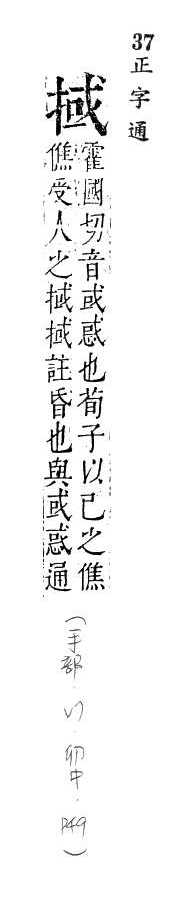 37 正字通
掝
霍國切音或惑也荀子以己之僬
僬受人之掝掝註昏也與或惑通
(手部．卯中．